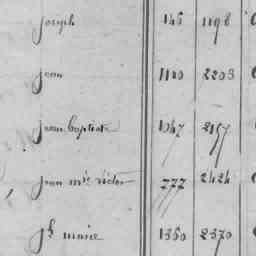 joseph 146 1198
jean 1120 2203
jean baptiste 1047 2157
jean mie victor 777 2424
jh marie 1350 2370